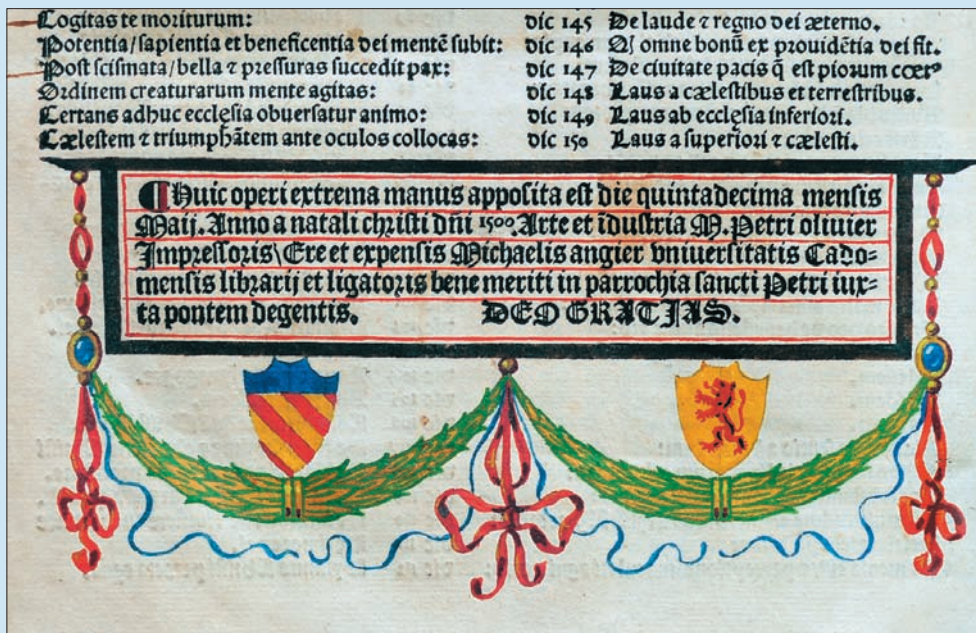 Cogitas te moriturum: dic 145 De laude ⁊ regno dei æterno.
Potentia/sapientia et beneficentia dei mentē subit: dic 146 Q omne bonū ex prouidētia dei fit.
Post scismata/bella ⁊ pressuras succedit pax: dic 147 De ciuitate pacis q̄ est piorum cœtꝰ
Ordinem creaturarum mente agitas: dic 148 Laus a cælestibus et terrestribus.
Certans adhuc ecclęsia obuersatur animo: dic 149 Laus ab ecclęsia inferiori.
Cælestem ⁊ triumphātem ante oculos collocas: dic 150 Laus a superiori ⁊ cælesti.
¶Huic operi extrema manus apposita est die quintadecima mensis
Maij. Anno a natali christi dn̄i 1500. Arte et īdustria M. Petri oliuier
Impressoris\ Ere et expensis Michaelis angier vniuersitatis Cado=
mensis librarij et ligatoris bene meriti in parrochia sancti Petri iux=
ta pontem degentis. DEO GRATIAS.